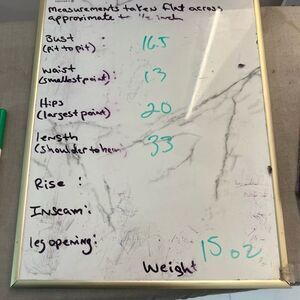 Measurements taken flat across
approximate to 1/2 inch
Bust : 16.5
(pit to pit)
Waist : 13
(smallest point)
Hips : 20
(largest point)
length : 33
(shoulder to hem)
Rise :
Inseam :
leg opening :
15 oz
Weight